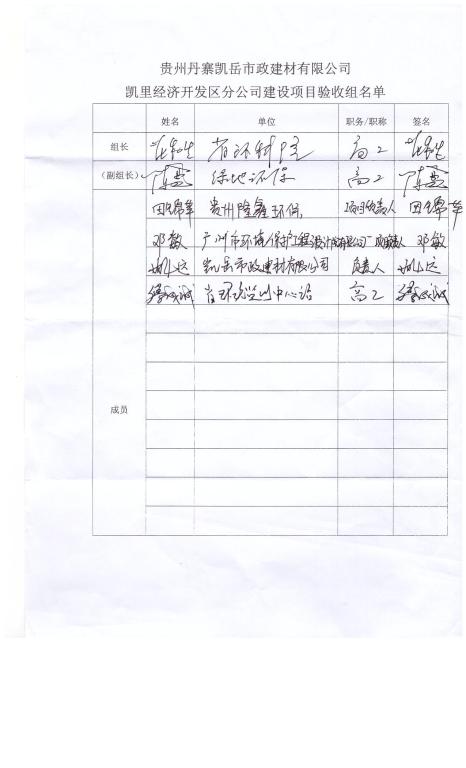 贵州丹寨凯岳市政建材有限公司
凯里经济开发区分公司建设项目验收组名单
姓名 单位 职务/职称 签名
组长 省环科院 高工
（副组长） 陈 绿地环保 高工 陈
田锦华 贵州隆鑫环保 项目负责人 田锦华
邓敏 广州市环境保护工程设计院有限公司 项目负责人 邓敏
凯岳市政建材有限公司 负责人
省环境监测中心站 高工
成员